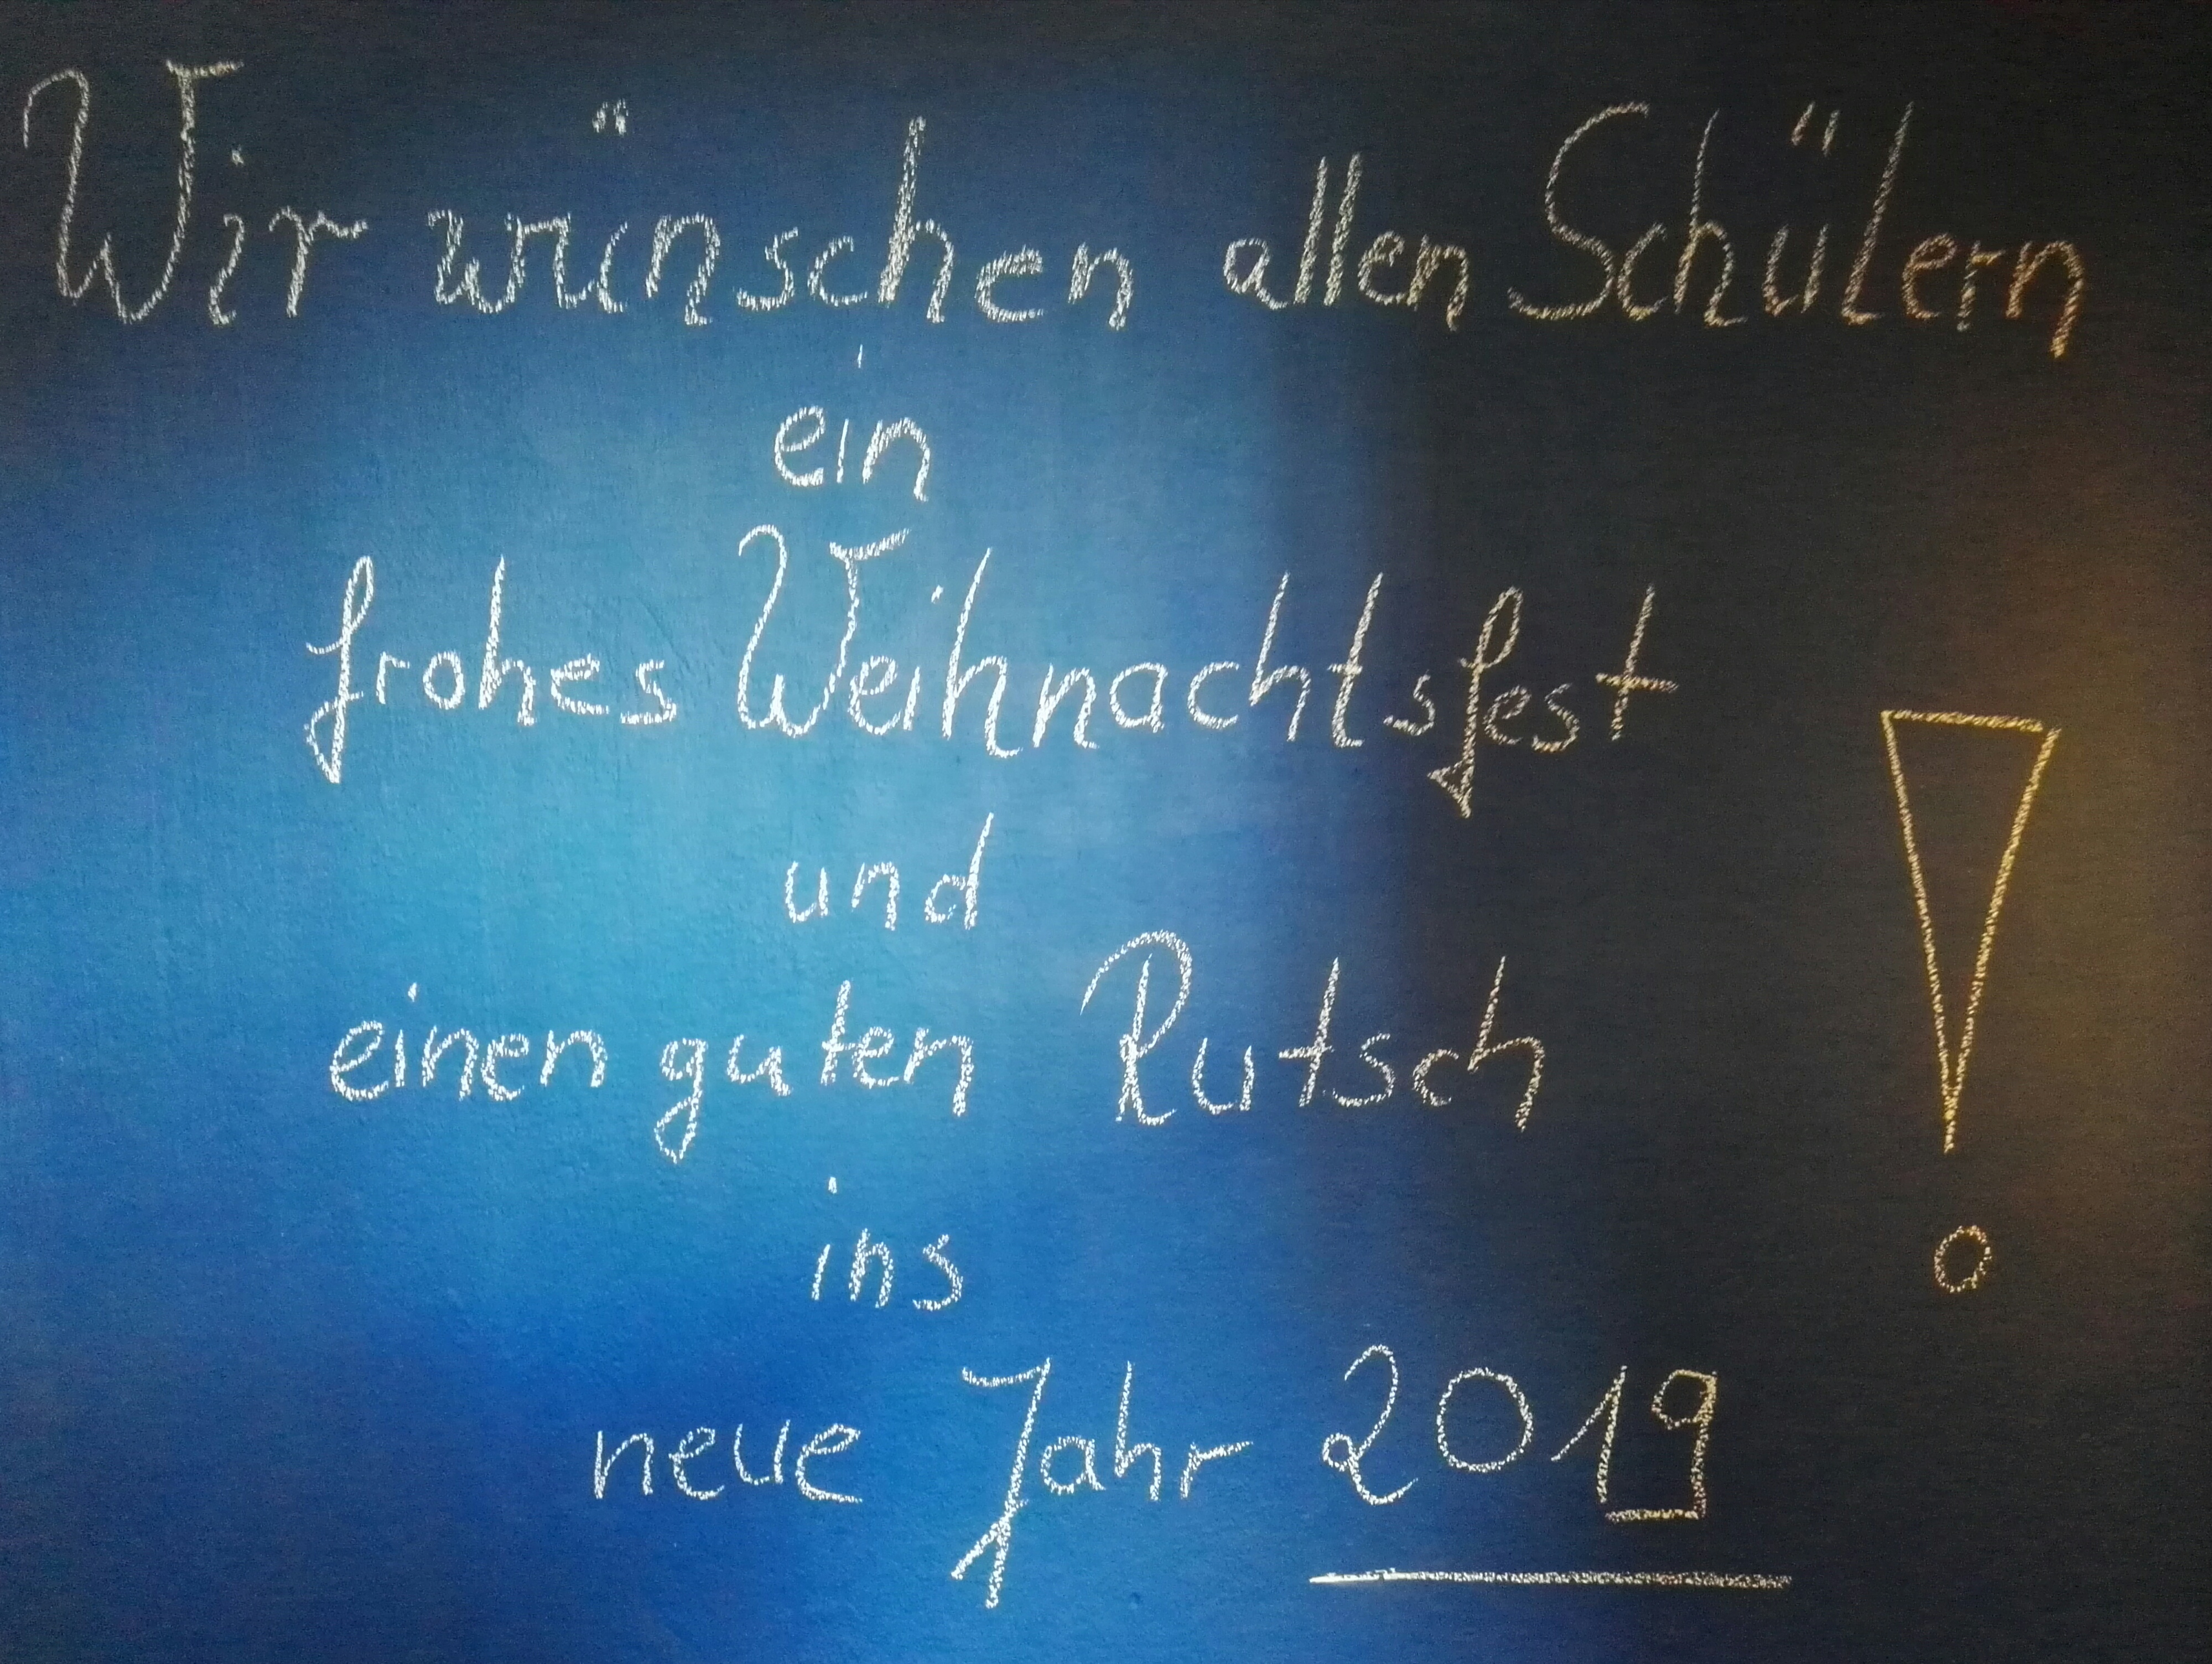 Wir wünschen allen Schülern
ein
frohes Weihnachtsfest
und
einen guten Rutsch
ins
neue Jahr 2019 !